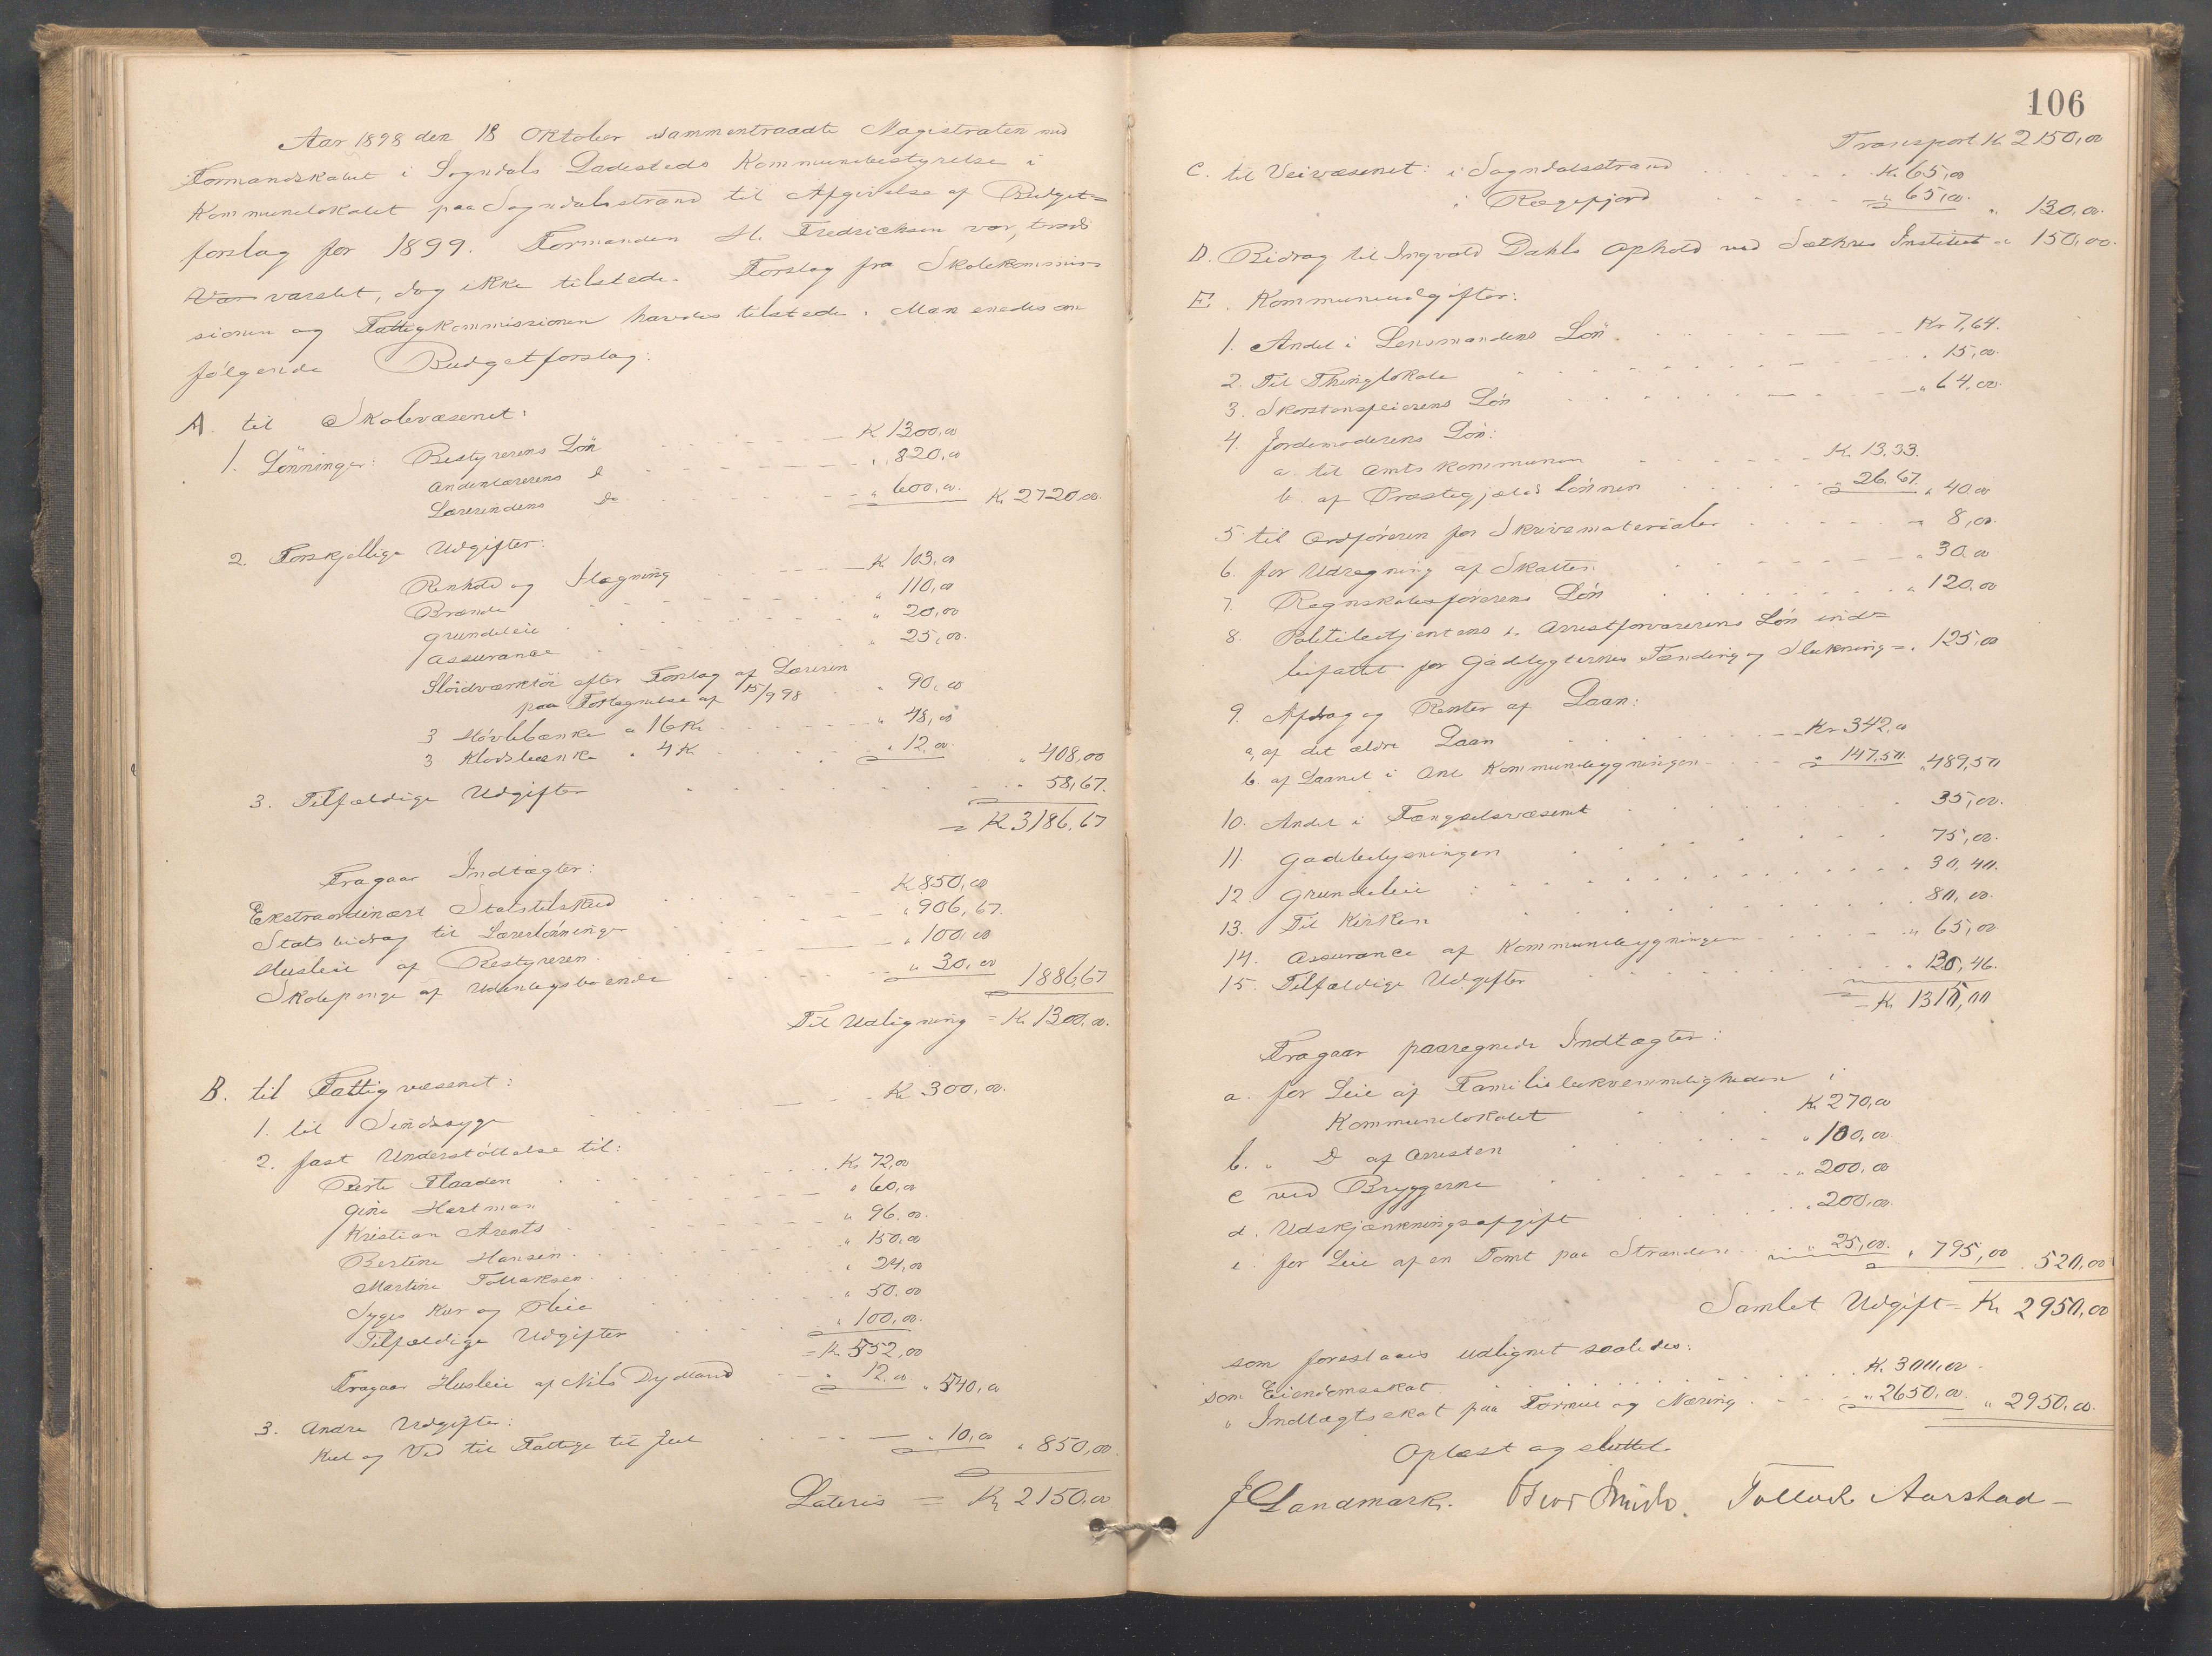 Aar 1898 den 18 Oktober sammentraadte Magistraten med
Formandskabet i Sogndals Ladesteds Kommunebestyrelse i
Kommunelokalet paa Sogndalsstrand til Afgivelse af Budget=
forslag for 1899. Formanden H. Fredricksen var, trods
varslet, dog ikke tilstede. Forslag fra Skolekommis=
sionen og Fattigkommissionen havdes tilstede. Man enedes om
følgende Budgetforslag:
A. til Skolevæsenet:
1. Lønninger: Bestyrerens Løn K 1300,00
Andenlærerens D " 820,00
Lærerindens Do " 600,00 Kr 2720,00
2. Forskjellige Udgifter:
Renhold og Ilægning K 103,00
Brænde " 110,00
Grundleie " 20,00
Assurance " 25,00
Sløidværktøi efter Forslag af Læreren
paa Fortegnelse af 15/9 98 " 90,00
3 Høvlebænke a 16 Kr " 48,00
3 Klodsbænke " 4 K " 12,00 " 408,00
3. Tilfældige Udgifter " 58,67
= K 3186,67
Fragaar Indtægter:
Ekstraordinært Statstilskud K 850,00
Statsbidrag til Lærerlønninger " 906,67
Husleie af Bestyreren " 100,00
Skolepenge af Udenbysboende " 30,00 1886,67
Til Udligning = K. 1300,00
B. til Fattigvæsenet:
1. til Sindssyge Kr 300,00
2. fast Understøttelse til:
Berte Flaaden Kr 72,00
Gine Hartman " 60,00
Kristian Arents " 96,00
Bertine Hansen " 150,00
Martine Tollaksen " 24,00
Syges Kur og Pleie " 50,00
Tilfældige Udgifter " 100,00
= K. 552,00
Fragaar Husleie af Nils Dydland " 12,00 " 540,00
3. Andre Udgifter:
Kul og Ved til Fattige til Jul " 10,00 " 850,00
Lateris = Kr 2150,00
106
Transport K 2150,00
C. til Veivæsenet: i Sogndalsstrand K. 65,00
i Rægefjord " 65,00 " 130,00
D. Bidrag til Ingvald Dahls Ophold ved Sæthres Institut " 150,00
E. Kommuneudgifter:
1. Andel i Lensmandens Løn Kr 7,64
2. Til Thinglokale " 15,00
3. Skorstensfeierens Løn " 64,00
4. Jordemoderens Løn:
a. til Amtskommunen K. 13,33
b. af Præstegjelds Lønnen " 26,67 " 40,00
5 til Ordføreren for Skrivematerialer " 8,00
6. for Udregning af Skatten " 30,00
7. Regnskabsførerens Løn " 120,00
8. Politibetjentens & Arrestforvarerens Løn ind=
befattet for Gadelygternes Tænding og Slukning = " 125,00
9. Afdrag og Renter af Laan:
a, af det ældre Laan Kr 342,00
b. af Laanet i Anl Kommunebygningen " 147,50 " 489,50
10. Andel i Fængselsvæsenet 35,00
11. Gadebelysningen 75,00
12. Grundleie 30,40
13. Til Kirken 80,00
14. Assurance af Kommunebygningen " 65,00
15. Tilfældige Udgifter " 130,46
= K. 1315,00
Fragaar paaregnede Indtægter:
a. for Leie af Familiebekvemmeligheden i
Kommunelokalet K. 270,00
b. " D af Arresten " 100,00
c ved Bryggerne " 200,00
d. Udskjænkningsafgift " 200,00
e. for Leie af en Tomt paa Stranden " 25,00 " 795,00 520,00
Samlet Udgift = Kr 2950,00
som foreslaaes udlignet saaledes:
som Eiendomsskat K. 300,00
" Indtægtsskat paa Formue og Næring " 2650,00 " 2950,00
Oplæst og sluttet
J Landmark. Tollach Aarstad